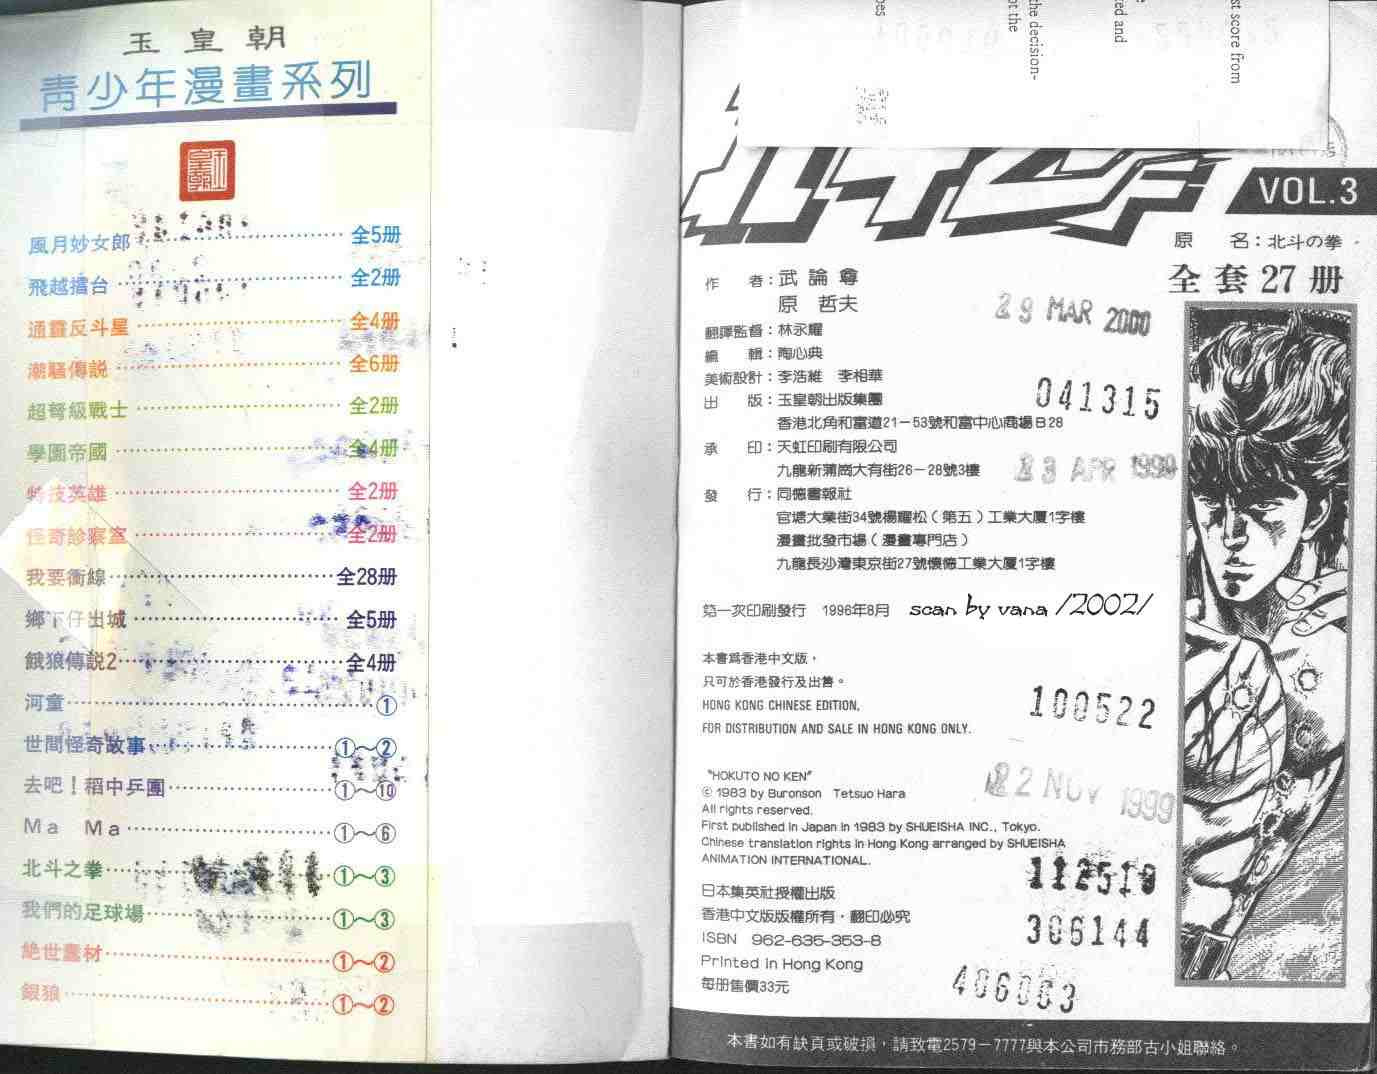 玉皇朝
青少年漫畫系列
風月妙女郎 全5册
飛越擂台 全2册
通靈反斗星 全4册
潮騷傳說 全6册
超弩級戰士 全2册
學園帝國 全4册
特技英雄 全2册
怪奇診察室 全2册
我要衝線 全28册
鄉下仔出城 全5册
餓狼傳說2 全4册
河童 ①
世間怪奇故事 ①~②
去吧！稻中乒團 ①~⑩
Ma Ma ①~⑥
北斗之拳 ①~③
我們的足球場 ①~③
絶世畫材 ①~②
銀狼 ①~②
st score from
ed and
the decision-
ot the
oes
VOL.3
原 名：北斗の拳
全套27册
作 者：武論尊
原 哲夫
翻譯監督：林永耀
編 輯：陶心典
美術設計：李浩維 李相華
出 版：玉皇朝出版集團
香港北角和富道21-53號和富中心商場B28
承 印：天虹印刷有限公司
九龍新蒲崗大有街26-28號3樓
發 行：同德書報社
官塘大業街34號楊耀松（第五）工業大厦1字樓
漫畫批發市場（漫畫專門店）
九龍長沙灣東京街27號懷德工業大厦1字樓
第一次印刷發行 1996年8月 scan by vana /2002/
29 MAR 2000
041315
23 APR 1999
本書爲香港中文版，
只可於香港發行及出售。
HONG KONG CHINESE EDITION,
FOR DISTRIBUTION AND SALE IN HONG KONG ONLY.
100522
"HOKUTO NO KEN"
© 1983 by Buronson Tetsuo Hara
All rights reserved.
First published in Japan in 1983 by SHUEISHA INC., Tokyo.
Chinese translation rights in Hong Kong arranged by SHUEISHA
ANIMATION INTERNATIONAL.
22 NOV 1999
112519
日本集英社授權出版
香港中文版版權所有，翻印必究
ISBN 962-635-353-8
Printed in Hong Kong
每册售價33元
306144
406003
本書如有缺頁或破損，請致電2579-7777與本公司市務部古小姐聯絡。